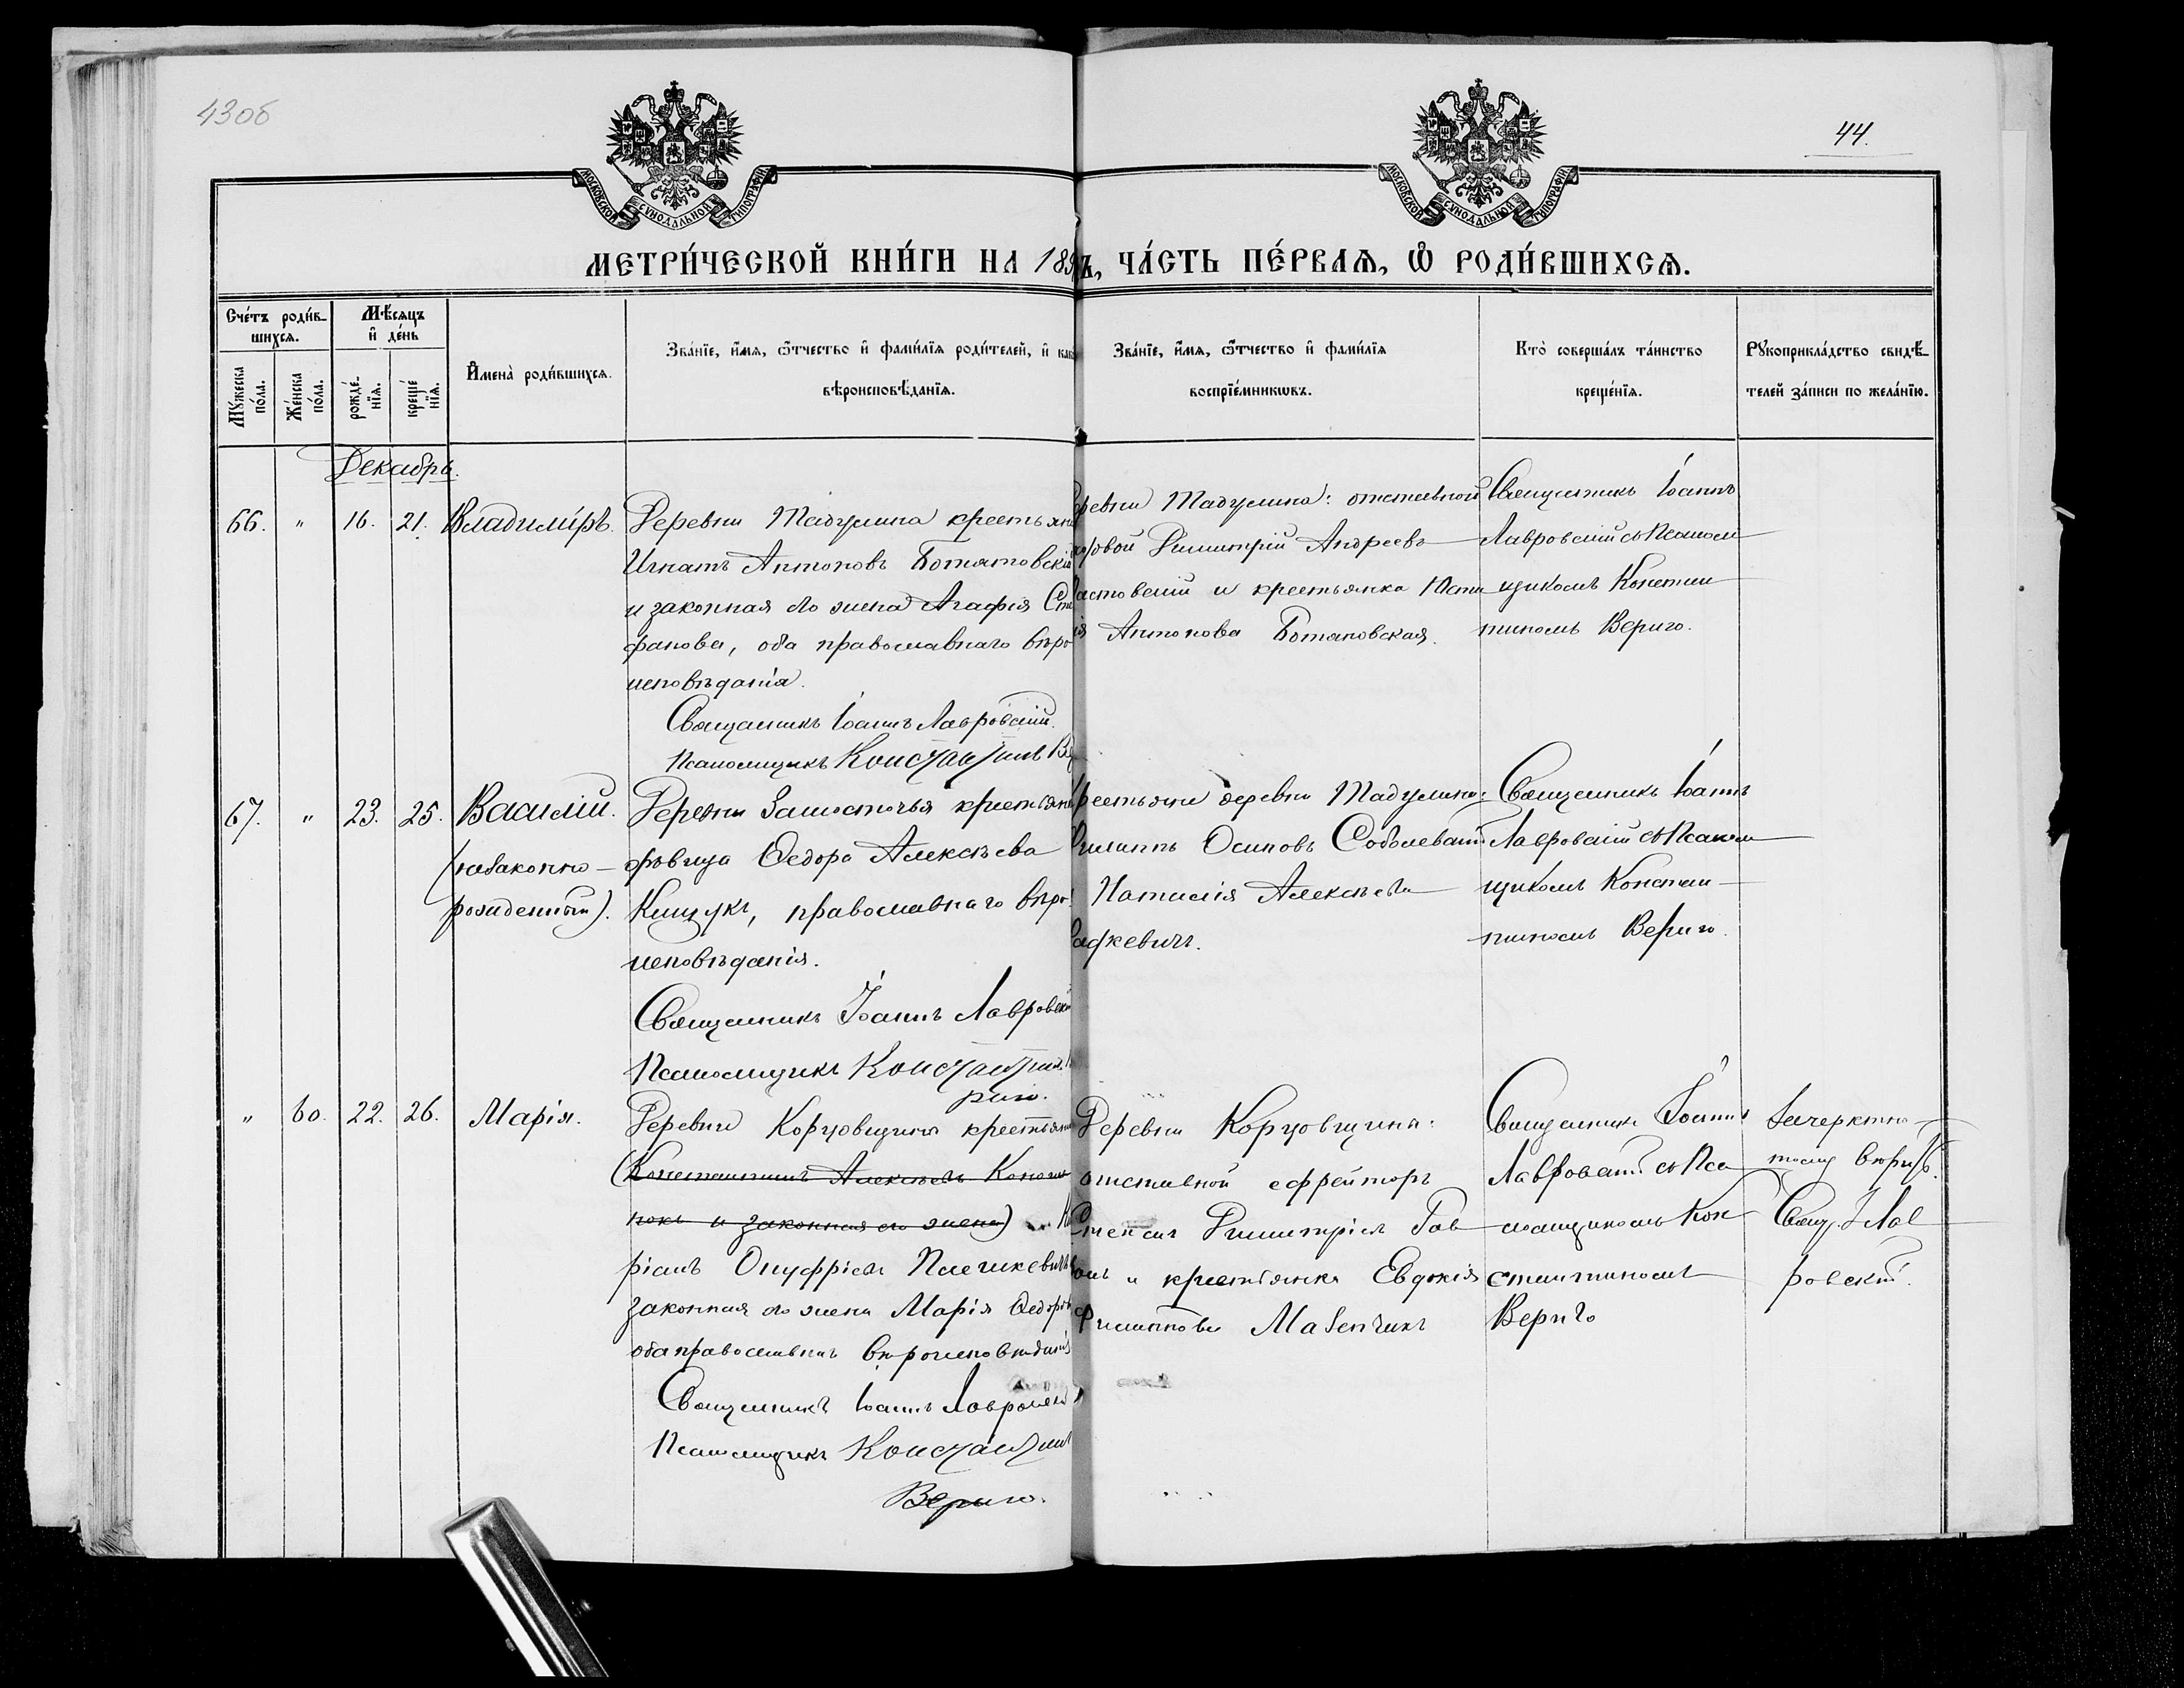 43об
44.
МОСКОВСКОЙ СѴНОДАЛЬНОЙ ТИПОГРАФІИ
МОСКОВСКОЙ СѴНОДАЛЬНОЙ ТИПОГРАФІИ
МЕТРИ́ЧЕСКОЙ КНИ́ГИ НА 189 Ъ, ЧА́СТЬ ПЕ́РВАѦ, Ѡ РОДИ́ВШИХСѦ.
Счéтъ роди́в-
шихсѧ.
Мꙋжеска по́ла.
Же́нска по́ла.
Мѣ́сѧцъ
и҆ де́нь
рожде́-нїѧ.
креще́нїѧ.
И҆мена̀ роди́вшихсѧ.
Зва́нїе, и҆́мѧ, ѻ҆́тчество и҆ фами́лїѧ роди́телей, и҆
вѣроисповѣ́данїѧ.
Зва́нїе, и҆́мѧ, ѻ҆́тчество и҆ фами́лїѧ
воспрїе́мникѡвъ.
Кто̀ соверша́лъ та́инство
креще́нїѧ.
Рꙋкоприкла́дство свидѣ́-
телей за́писи по жела́нїю.
Декабрь.
66. " 16. 21. Владиміръ.
Деревни Мадулина крестьяни
Игнатъ Антоновъ Ботяновскій
и законная его жена Агафія Сте
фанова, оба православнаго вѣро
исповѣданія.
Священникъ Іоаннъ Лавровскій.
Псаломщикъ Константинъ Ве
деревни Мадулина: отставной
рядовой Димитрій Андреевъ
и крестьянка
Антонова Ботяновская.
Священникъ Іоаннъ
Лавровскій съ Псалом
щикомъ Констан
тиномъ Вериго.
67. " 23. 25. Василій.
(незаконно-
рожденный).
Деревни Замосточья крестьян
ѳедора Алексѣева
Кищукъ, православнаго вѣро
исповѣданія.
Священникъ Іоаннъ Лавровскій
Псаломщикъ Константинъ
риго.
Крестьяне деревни Мадулина:
Филиппъ Осиповъ Соболевскій
Наталія Алексѣева
Священникъ Іоаннъ
Лавровскій съ Псалом
щикомъ Констан-
тиномъ Вериго.
" 60. 22. 26. Марія.
Деревни Корчовщина крестьянинъ
(Константинъ Алексѣевъ Конон
и законная его жена)
ріанъ Онуфріевъ
законная его жена Марія Ѳедоров
оба православнаго вѣроисповѣданія
Священникъ Іоаннъ Лавровскій
Псаломщикъ Константинъ
Вериго.
Деревни Корчовщина:
отставной ефрейторъ
Димитріевъ Гав
и крестьянка Евдокія
Филиппова Мазепчикъ
Священникъ Іоаннъ
Лавровскій съ Пса
ломщикомъ Кон
стантиномъ
Вериго
Зачеркнуто
вѣрить.
Свящ. І Лав
ровскій.